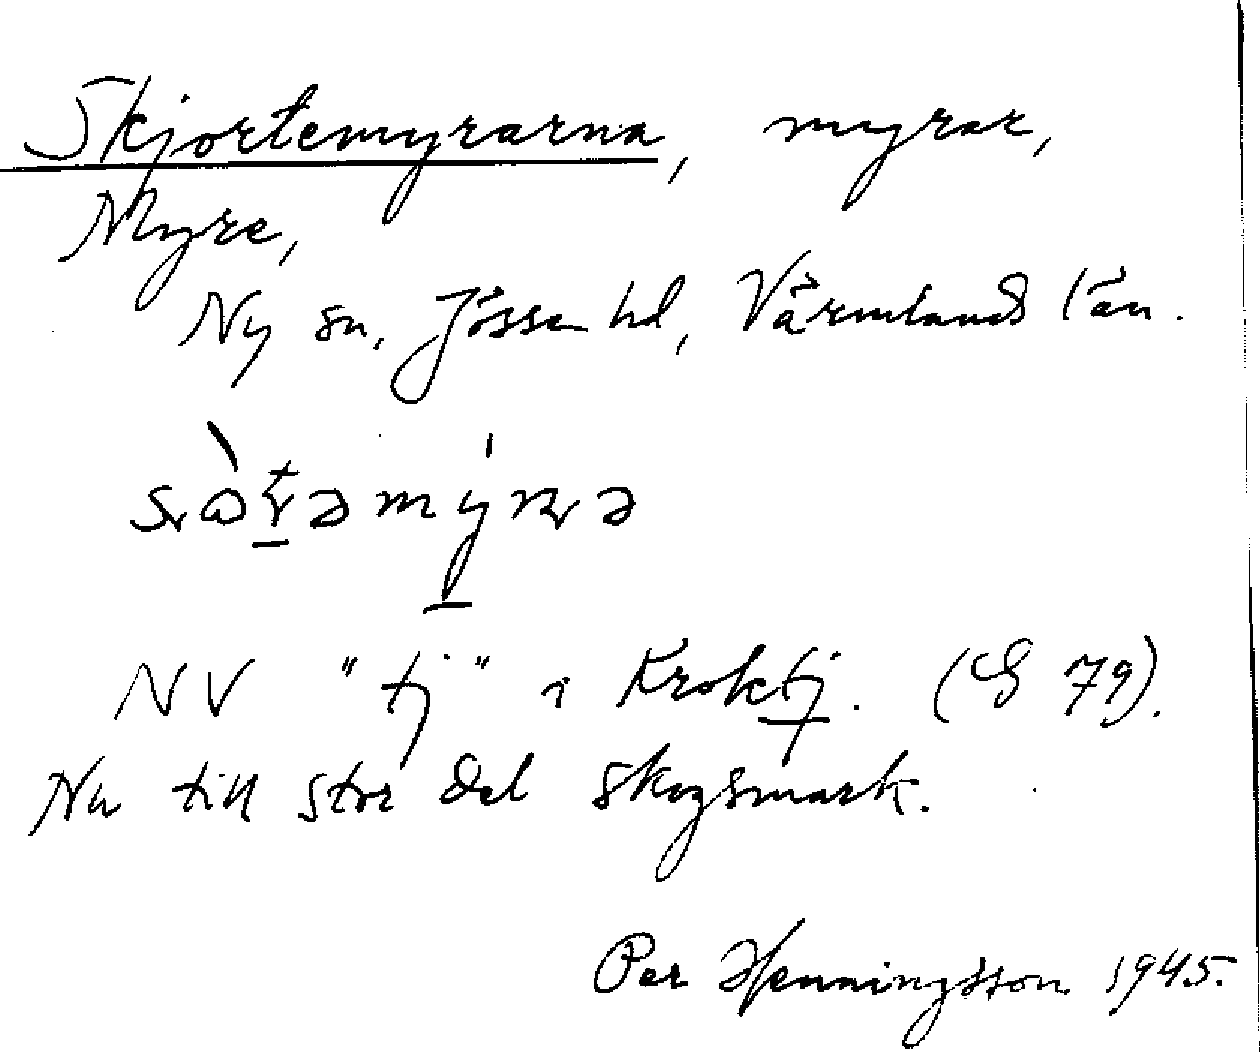 Skjortemyrarna, myrar,
Myre,
Ny sn, Jösse hd, Värmlands län.
NV "tj" i Kroktj. (G 79).
Nu till stor del skogsmark.
Per Henningsson 1945.